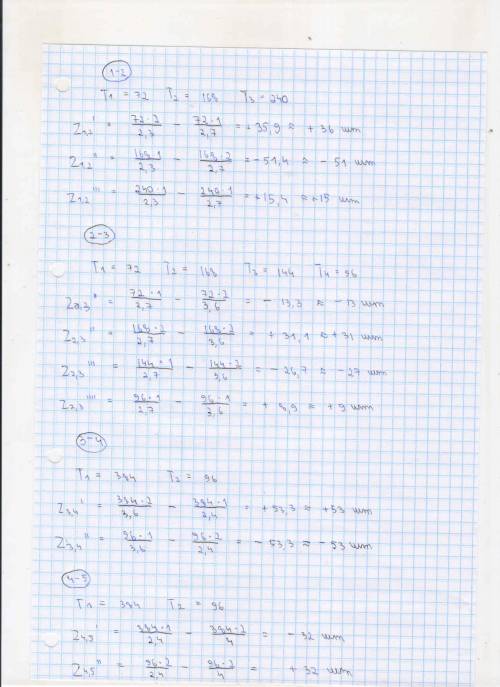 1-2
T1 = 72 T2 = 168 T3 = 240
Z1,2' = 72·2/2,3 − 72·1/2,7 = +35,9 ≈ +36 шт
Z1,2'' = 168·1/2,3 − 168·2/2,7 = −51,4 ≈ −51 шт
Z1,2''' = 240·1/2,3 − 240·1/2,7 = +15,4 ≈ +15 шт
2-3
T1 = 72 T2 = 168 T3 = 144 T4 = 96
Z2,3' = 72·1/2,7 − 72·2/3,6 = −13,3 ≈ −13 шт
Z2,3'' = 168·2/2,7 − 168·2/3,6 = +31,1 ≈ +31 шт
Z2,3''' = 144·1/2,7 − 144·2/3,6 = −26,7 ≈ −27 шт
Z2,3'''' = 96·1/2,7 − 96·1/3,6 = +8,9 ≈ +9 шт
3-4
T1 = 384 T2 = 96
Z3,4' = 384·2/3,6 − 384·1/2,4 = +53,3 ≈ +53 шт
Z3,4'' = 96·1/3,6 − 96·2/2,4 = −53,3 ≈ −53 шт
4-5
T1 = 384 T2 = 96
Z4,5' = 384·1/2,4 − 384·2/4 = −32 шт
Z4,5'' = 96·2/2,4 − 96·2/4 = +32 шт